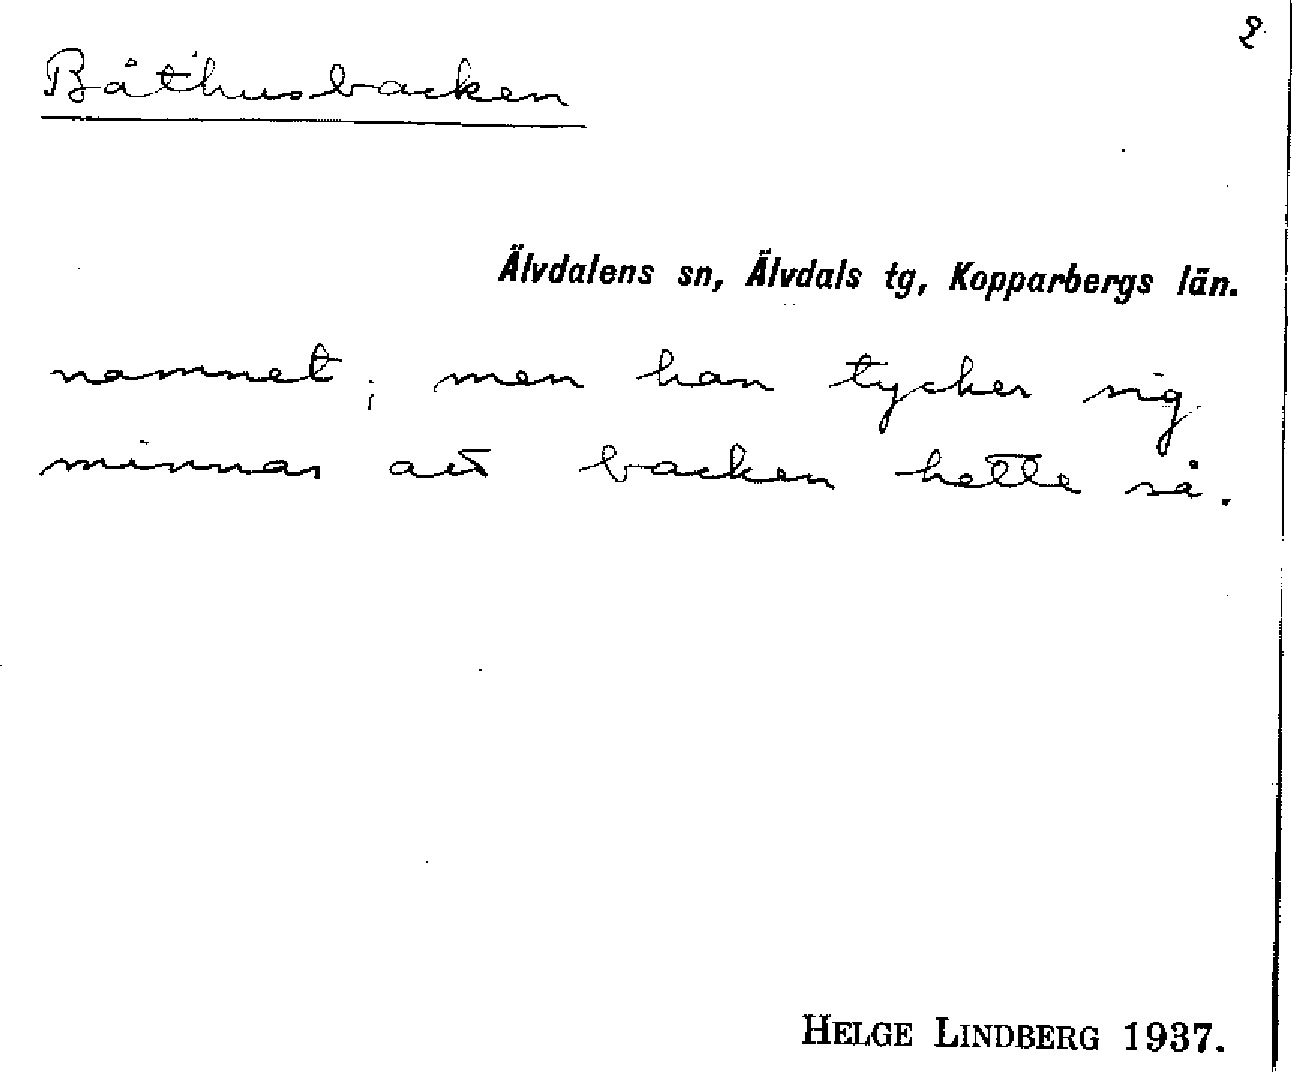 2
Båthusbacken
Älvdalens sn, Älvdals tg, Kopparbergs län.
namnet; men han tycker sig
minnas att backen hette så.
HELGE LINDBERG 1937.